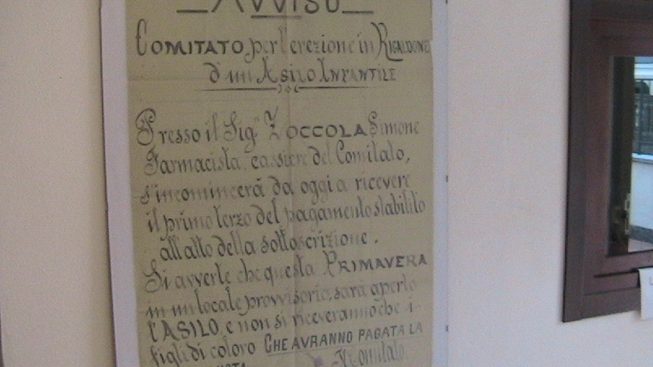 AVVISO
COMITATO, per l'erezione in RIGALDONO
d'un ASILO INFANTILE
Presso il Sig.r ZOCCOLA Simone
Farmacista, cassiere del Comitato,
s'incomincerà da oggi a ricevere
il primo terzo del pagamento stabilito
all'atto della sottoscrizione.
Si avverte che questa PRIMAVERA
in un locale provvisorio, sarà aperto
l'ASILO, e non si riceveranno che i
figli di coloro CHE AVRANNO PAGATA LA
Il Comitato.